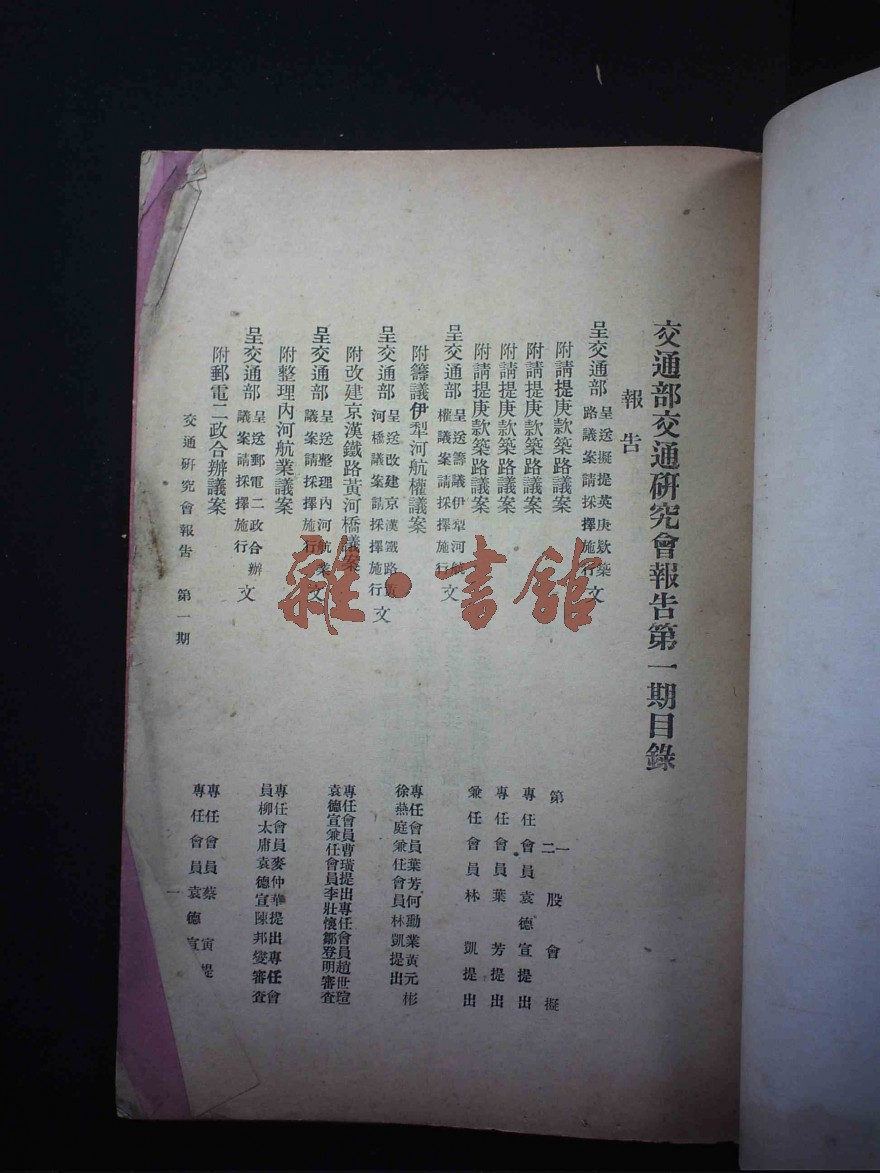 交通部交通研究會報告第一期目錄
報告
呈交通部呈送擬提英庚欵築路議案請採擇施行文
附請提庚款築路議案 第一二股會擬
附請提庚款築路議案 專任會員袁德宣提出
附請提庚款築路議案 專任會員葉芳提出
附請提庚款築路議案 兼任會員林凱提出
呈交通部呈送籌議伊犁河航權議案請採擇施行文
附籌議伊犁河航權議案 專任會員葉芳何勱業黃元彬徐燕庭兼任會員林凱提出
呈交通部呈送改建京漢鐵路黃河橋議案請採擇施行文
附改建京漢鐵路黃河橋議案 專任會員曹璜提出專任會員趙世瑄袁德宣兼任會員李壯懷鄒登明審查
呈交通部呈送整理內河航業議案請採擇施行文
附整理內河航業議案 專任會員麥仲華提出專任會員柳太庸袁德宣陳邦燮審查
呈交通部呈送郵電二政合辦議案請採擇施行文
附郵電二政合辦議案 專任會員蔡寅提專任會員袁德宣
交通研究會報告 第一期 一
雜·書館